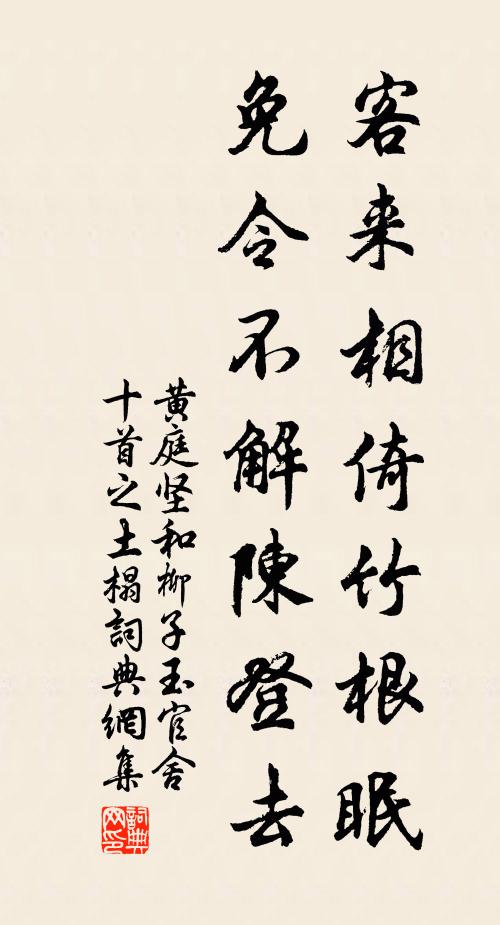 客来相倚竹根眠
免令不解陳登去
黄庭坚和柳子玉官舍
十首之土榻詞典網集
詞典
网印